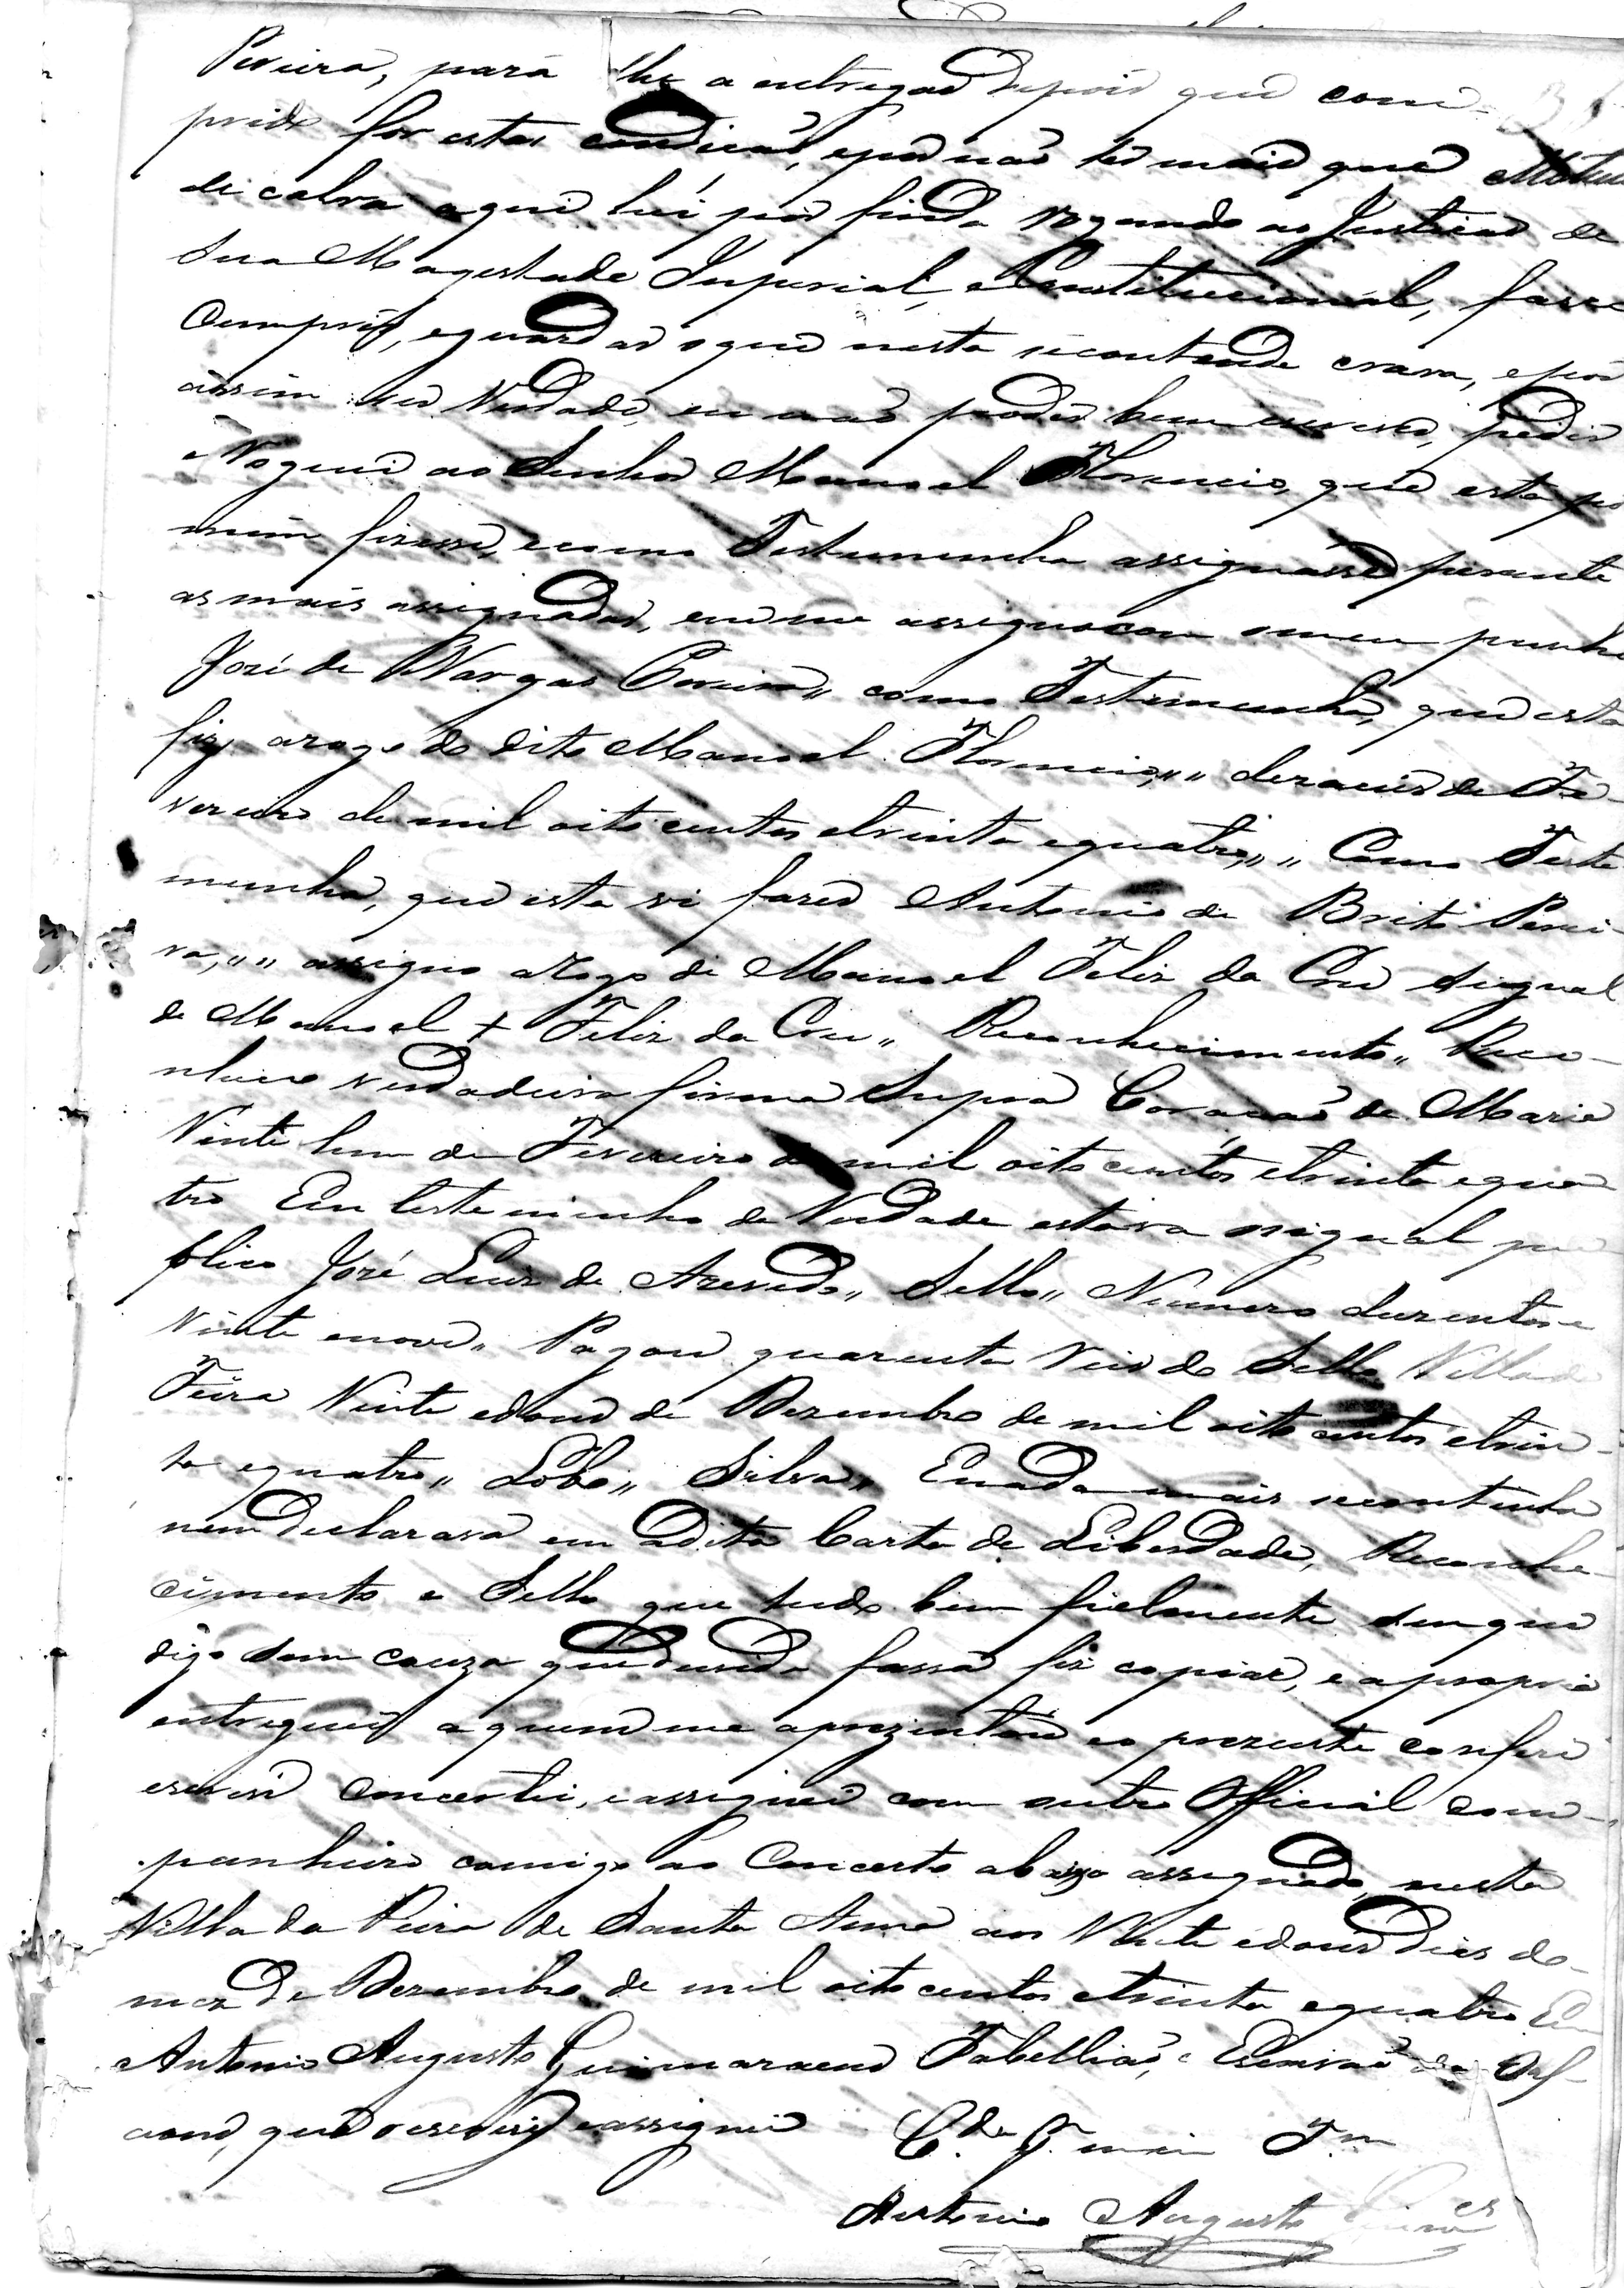 Pereira, para lhe a entregar depois que com-
prido for estas condicaõ, epor naõ ter mais que
declara aqui hei por finda rogando as Justicas de
Sua Magestade Imperial, e Constitucional, fassa
Cumprir, eguardar oque nesta secontende crara, epor
assim ser Verdade, eu naõ poder bem escrever, pedir
eRoguei ao Senhor Manoel Florencio, que esta por
mim fizesse, ecomo Testemunha assignasse perante
as mais assignadas, eu me assigno com omeu punho
José de Vargas Pereira,, como Testemunha, que esta
fiz, arogo do dito Manoel Florencio,,,, deraceis de Fe-
vereiro de mil oito centos etrinta equatro,,,, Como Teste
munha, que esta vi fazer Antonio de Brito Perei-
ra,,,, assigno arogo de Manoel Felix da Cru Signal
de Manoel + Felix da Cru,, Reconhecimento,, Reco-
nheco verdadeira firma Supra Coracaõ de Maria
Vinte hum de Fevereiro de mil oito centos etrinta equa
tro Em testeminho da Verdade estava osignal pu
blico José Luis de Azevedo,, Sello,, Numero duzentos e
Vinte enove,, Pagou quarenta reis do Sello Villa da
Feira Vinte edous de Dezembro de mil oito centos etrin-
ta equatro,, Lobo,, Silva,, Enada mais secontinha
nem declarava em adita Carta de Liberdade, Reconhe-
cimento e Sello que tudo bem fielmente sem que
digo sem couza que duvida fassa fiz copiar, e apropria
entreguei aquem me aprezentou eo prezente conferi
escrevi Concertei, eassignei com outro Official com-
panheiro comigo ao Concerto abaixo assignado, nesta
Villa da Feira de Santa Anna aos Vinte edous dias do
mez de Dezembro de mil oito centos etrinta equatro Eu
Antonio Augusto Guimaraens Tabelliaõ, e Escrivaõ de Orf-
aons, que oescrevi, eassignei C. de
Antonio Augusto Guim.es